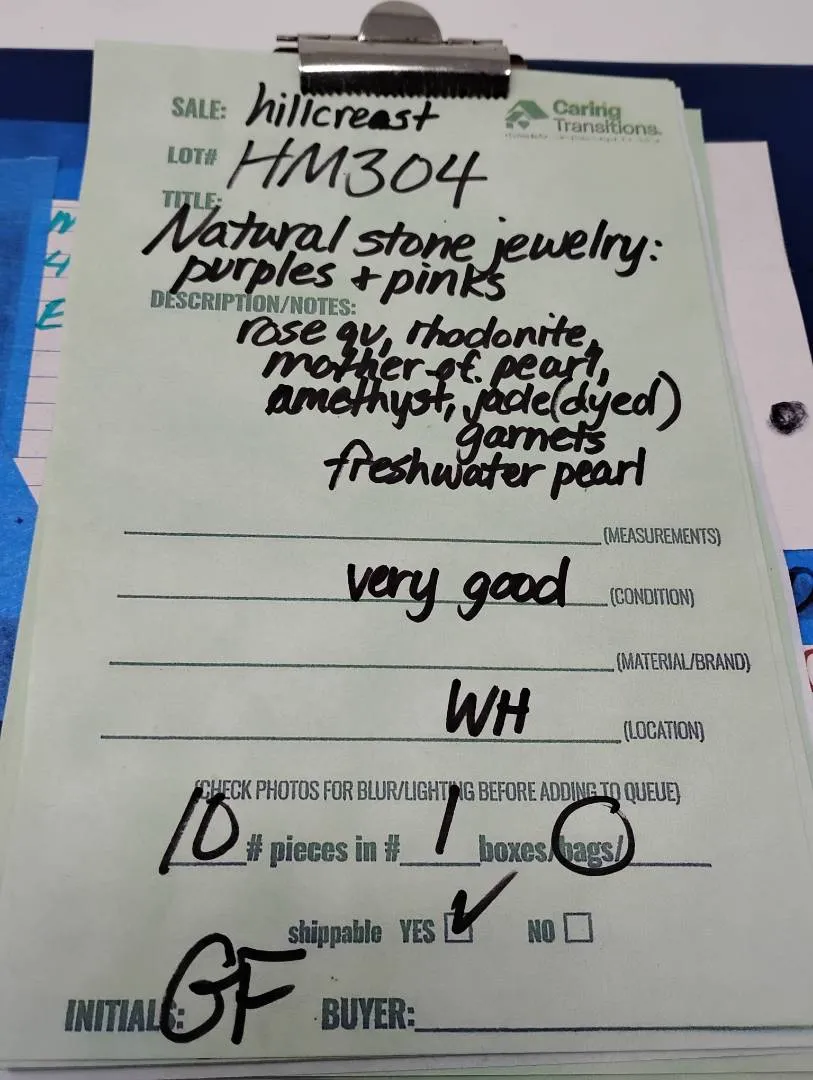 SALE: hillcreast
Caring
Transitions.
LOT# HM304
TITLE:
Natural stone jewelry:
purples + pinks
DESCRIPTION/NOTES:
rose qu, rhodonite,
mother of pearl,
amethyst, jade(dyed)
garnets
freshwater pearl
(MEASUREMENTS)
very good (CONDITION)
(MATERIAL/BRAND)
WH (LOCATION)
(CHECK PHOTOS FOR BLUR/LIGHTING BEFORE ADDING TO QUEUE)
10 # pieces in # 1 boxes/bags/
shippable YES ✓ NO
INITIALS: GF BUYER: